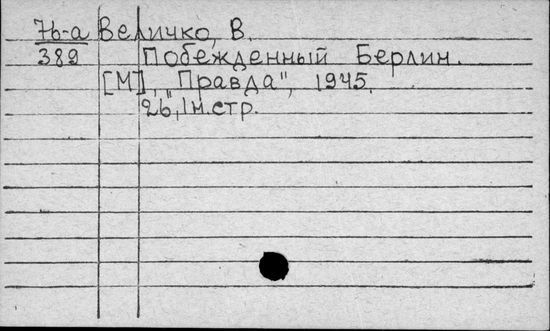 7b-a Величко, В.
389 Побежденный Берлин.
[М], "Правда", 1945.
26, 1 н.стр.